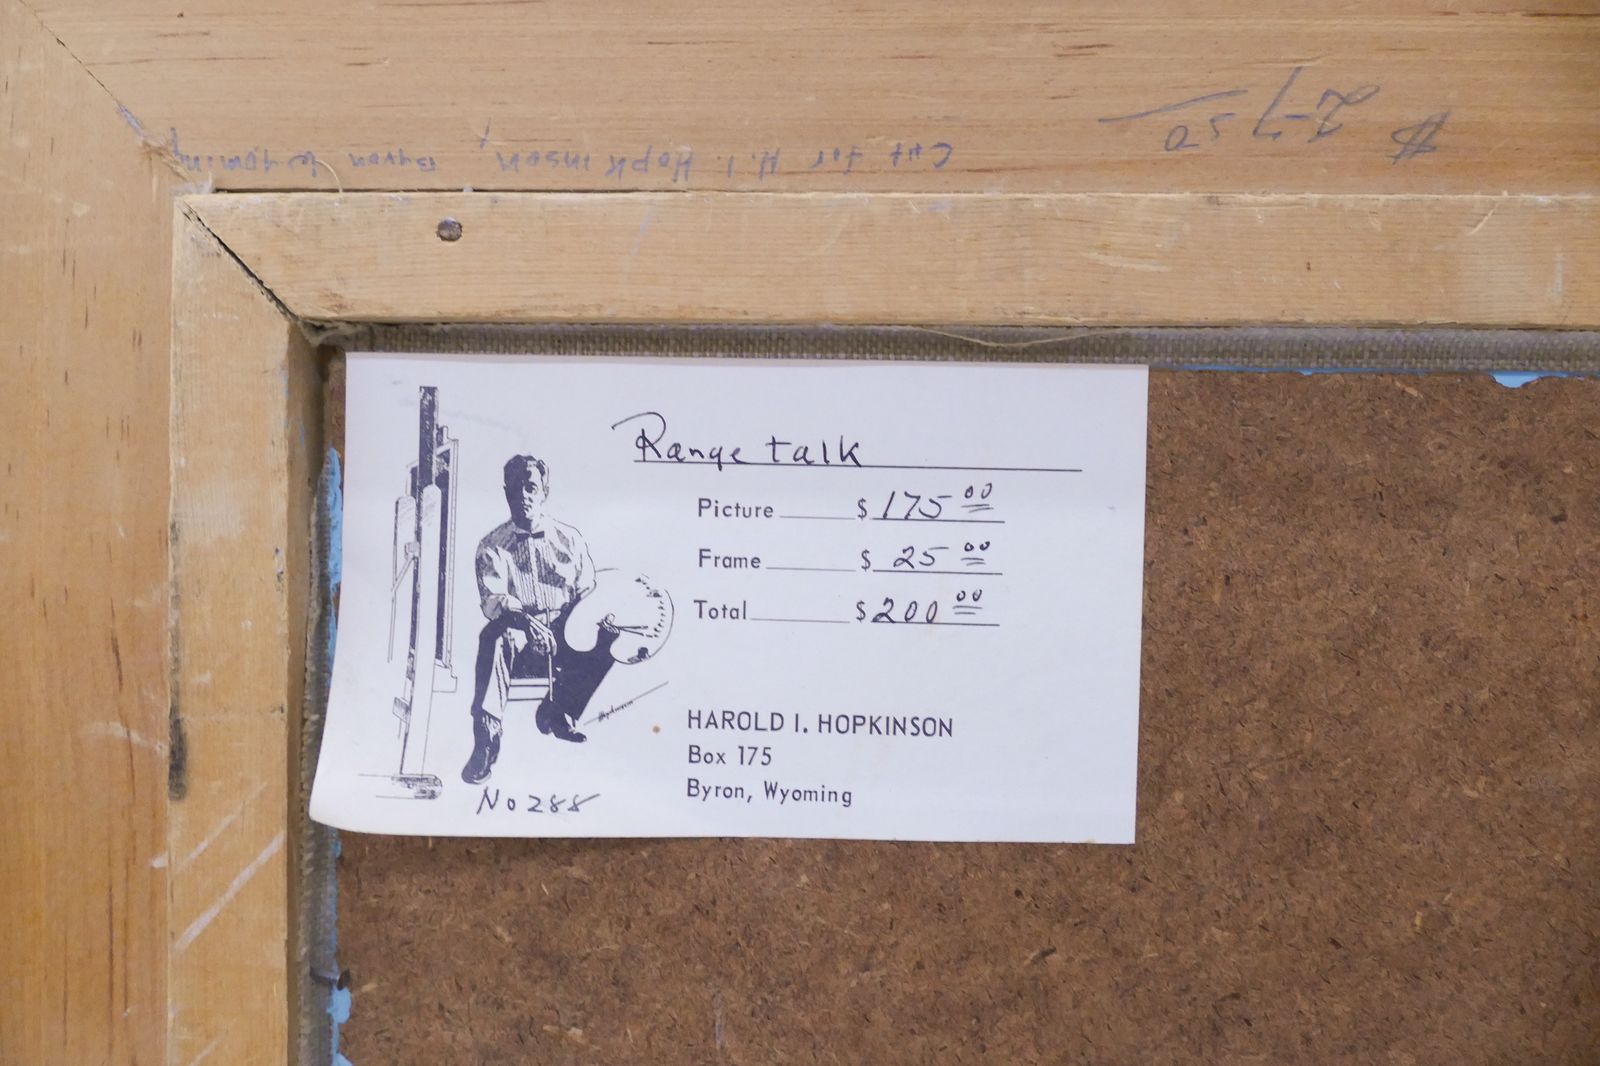 $ 27 50
Cut for H. I. Hopkinson, Byron Wyoming
Range talk
Picture $ 175 00
Frame $ 25 00
Total $ 200 00
Hopkinson
HAROLD I. HOPKINSON
Box 175
Byron, Wyoming
No 288